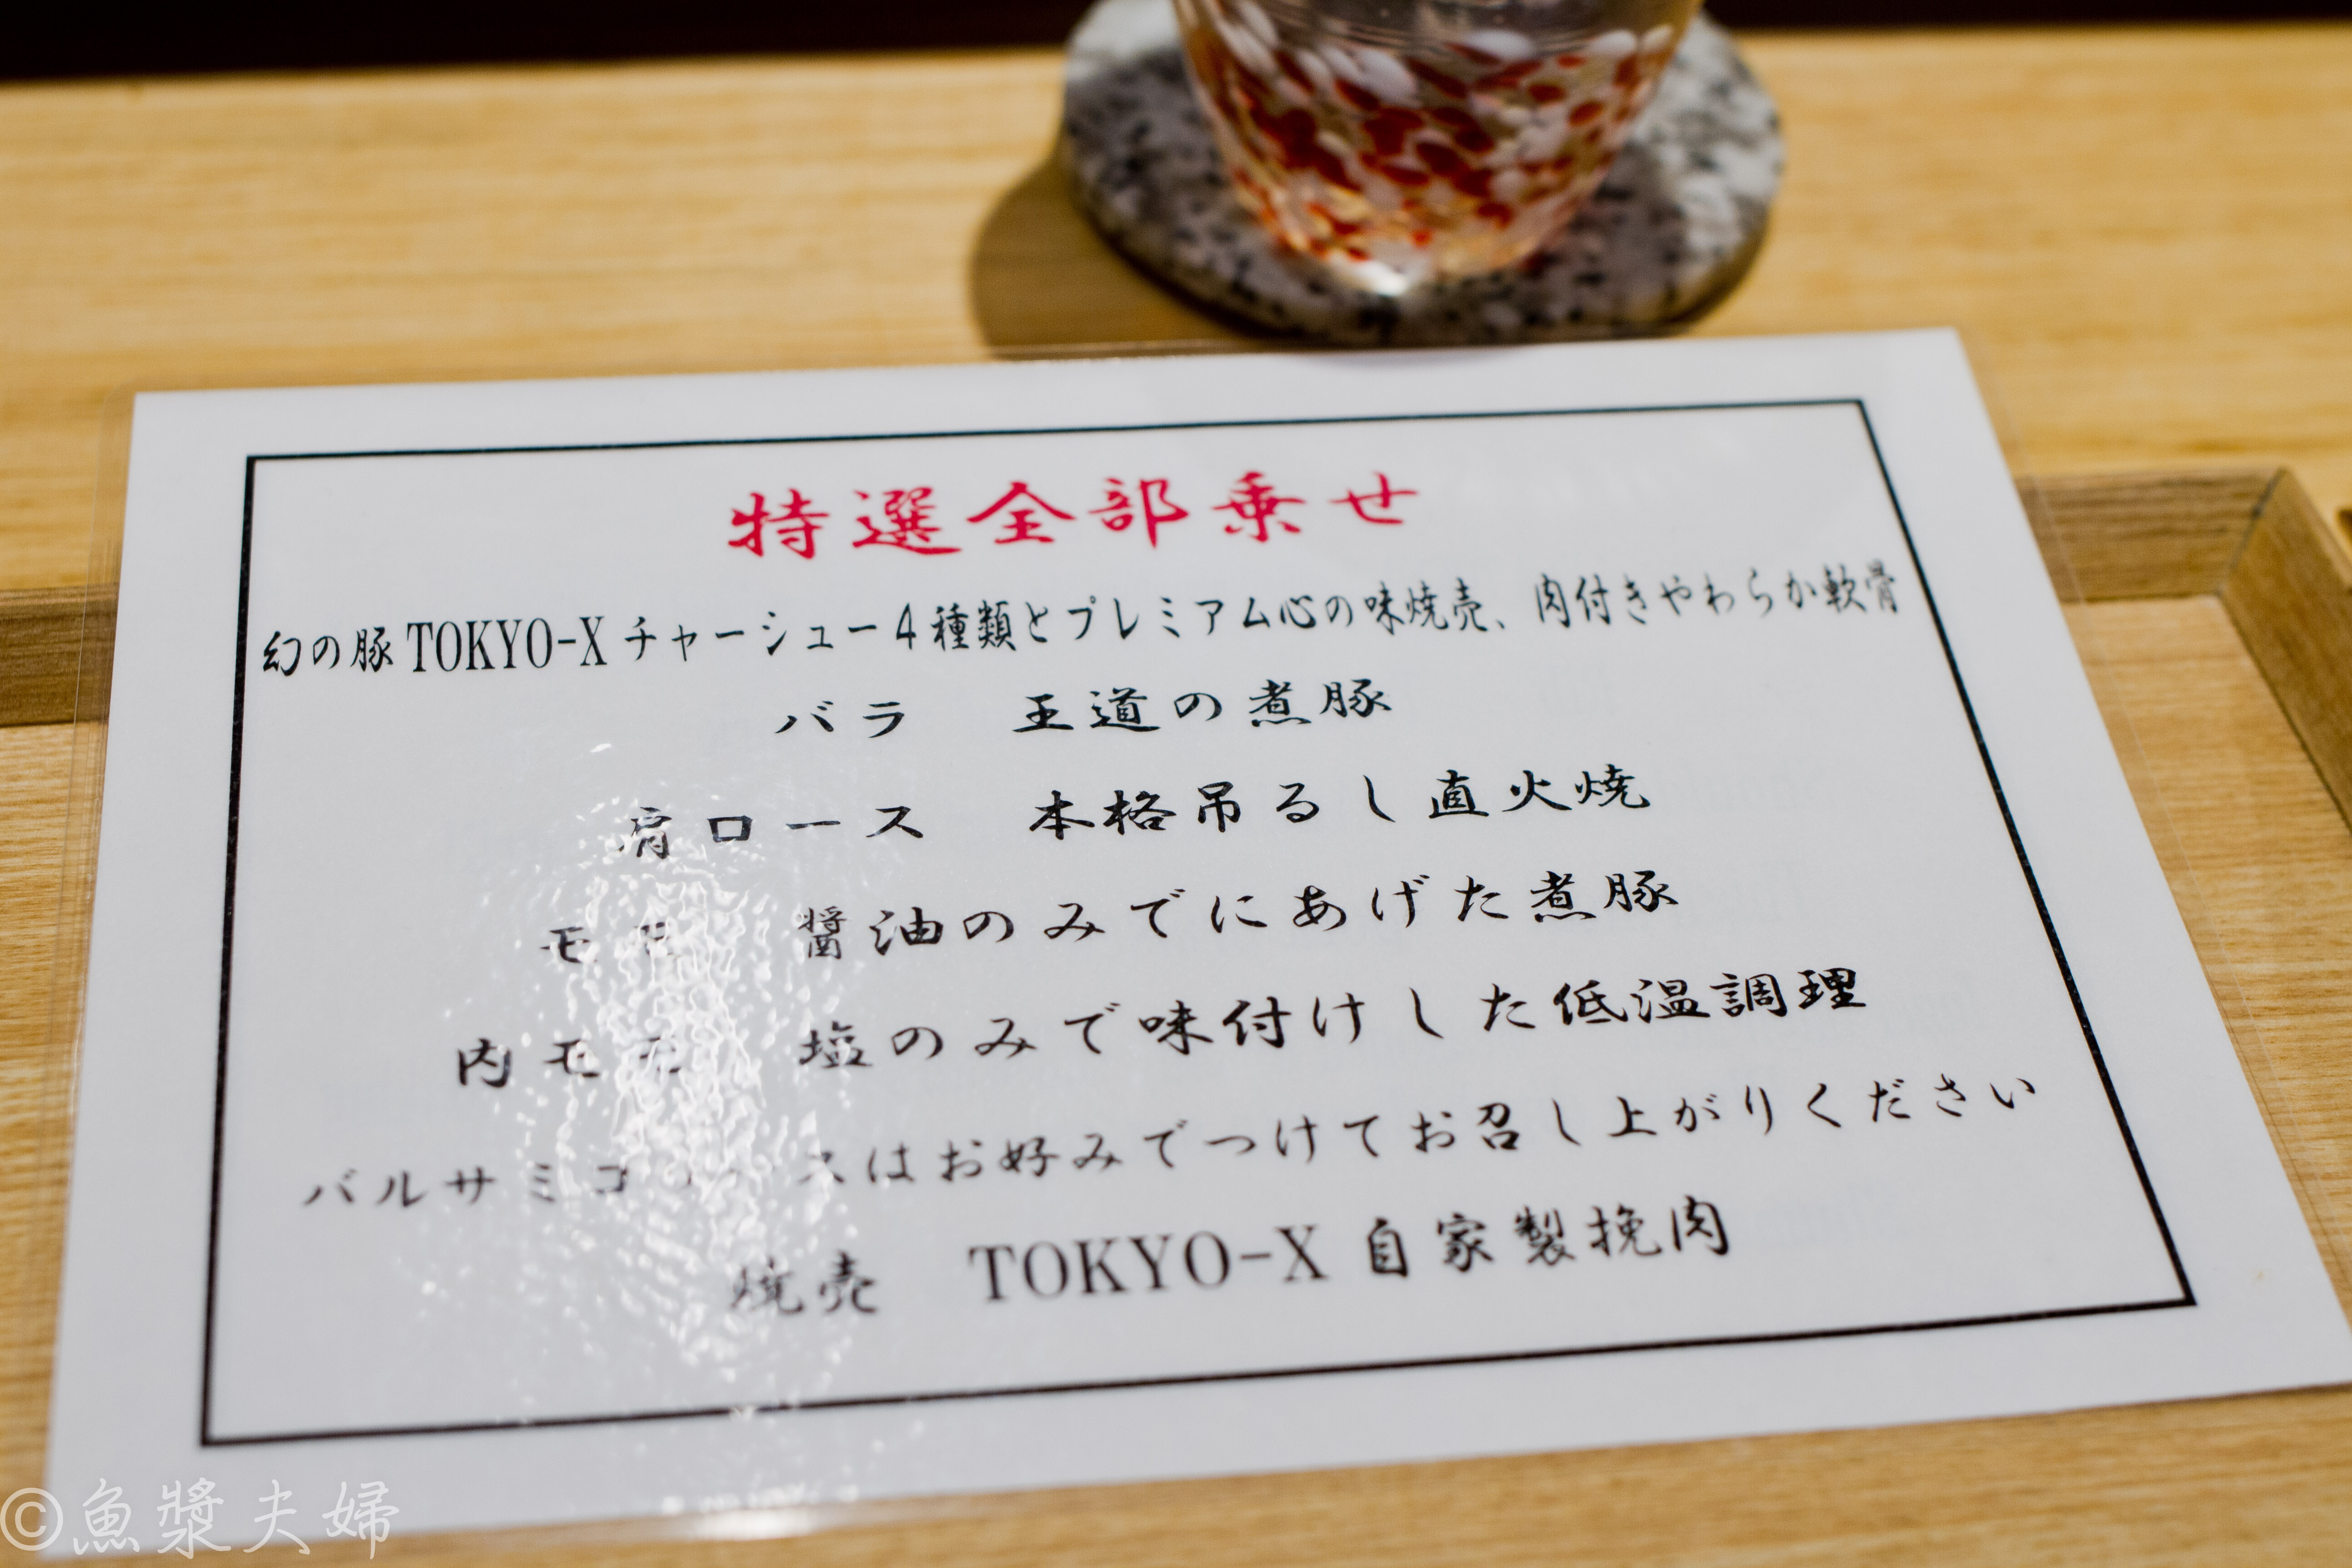 特選全部乗せ
幻の豚TOKYO-Xチャーシュー4種類とプレミアム心の味焼売、肉付きやわらか軟骨
バラ　王道の煮豚
肩ロース　本格吊るし直火焼
モモ　醤油のみでにあげた煮豚
内モモ　塩のみで味付けした低温調理
バルサミコソースはお好みでつけてお召し上がりください
焼売　TOKYO-X自家製挽肉
©魚漿夫婦